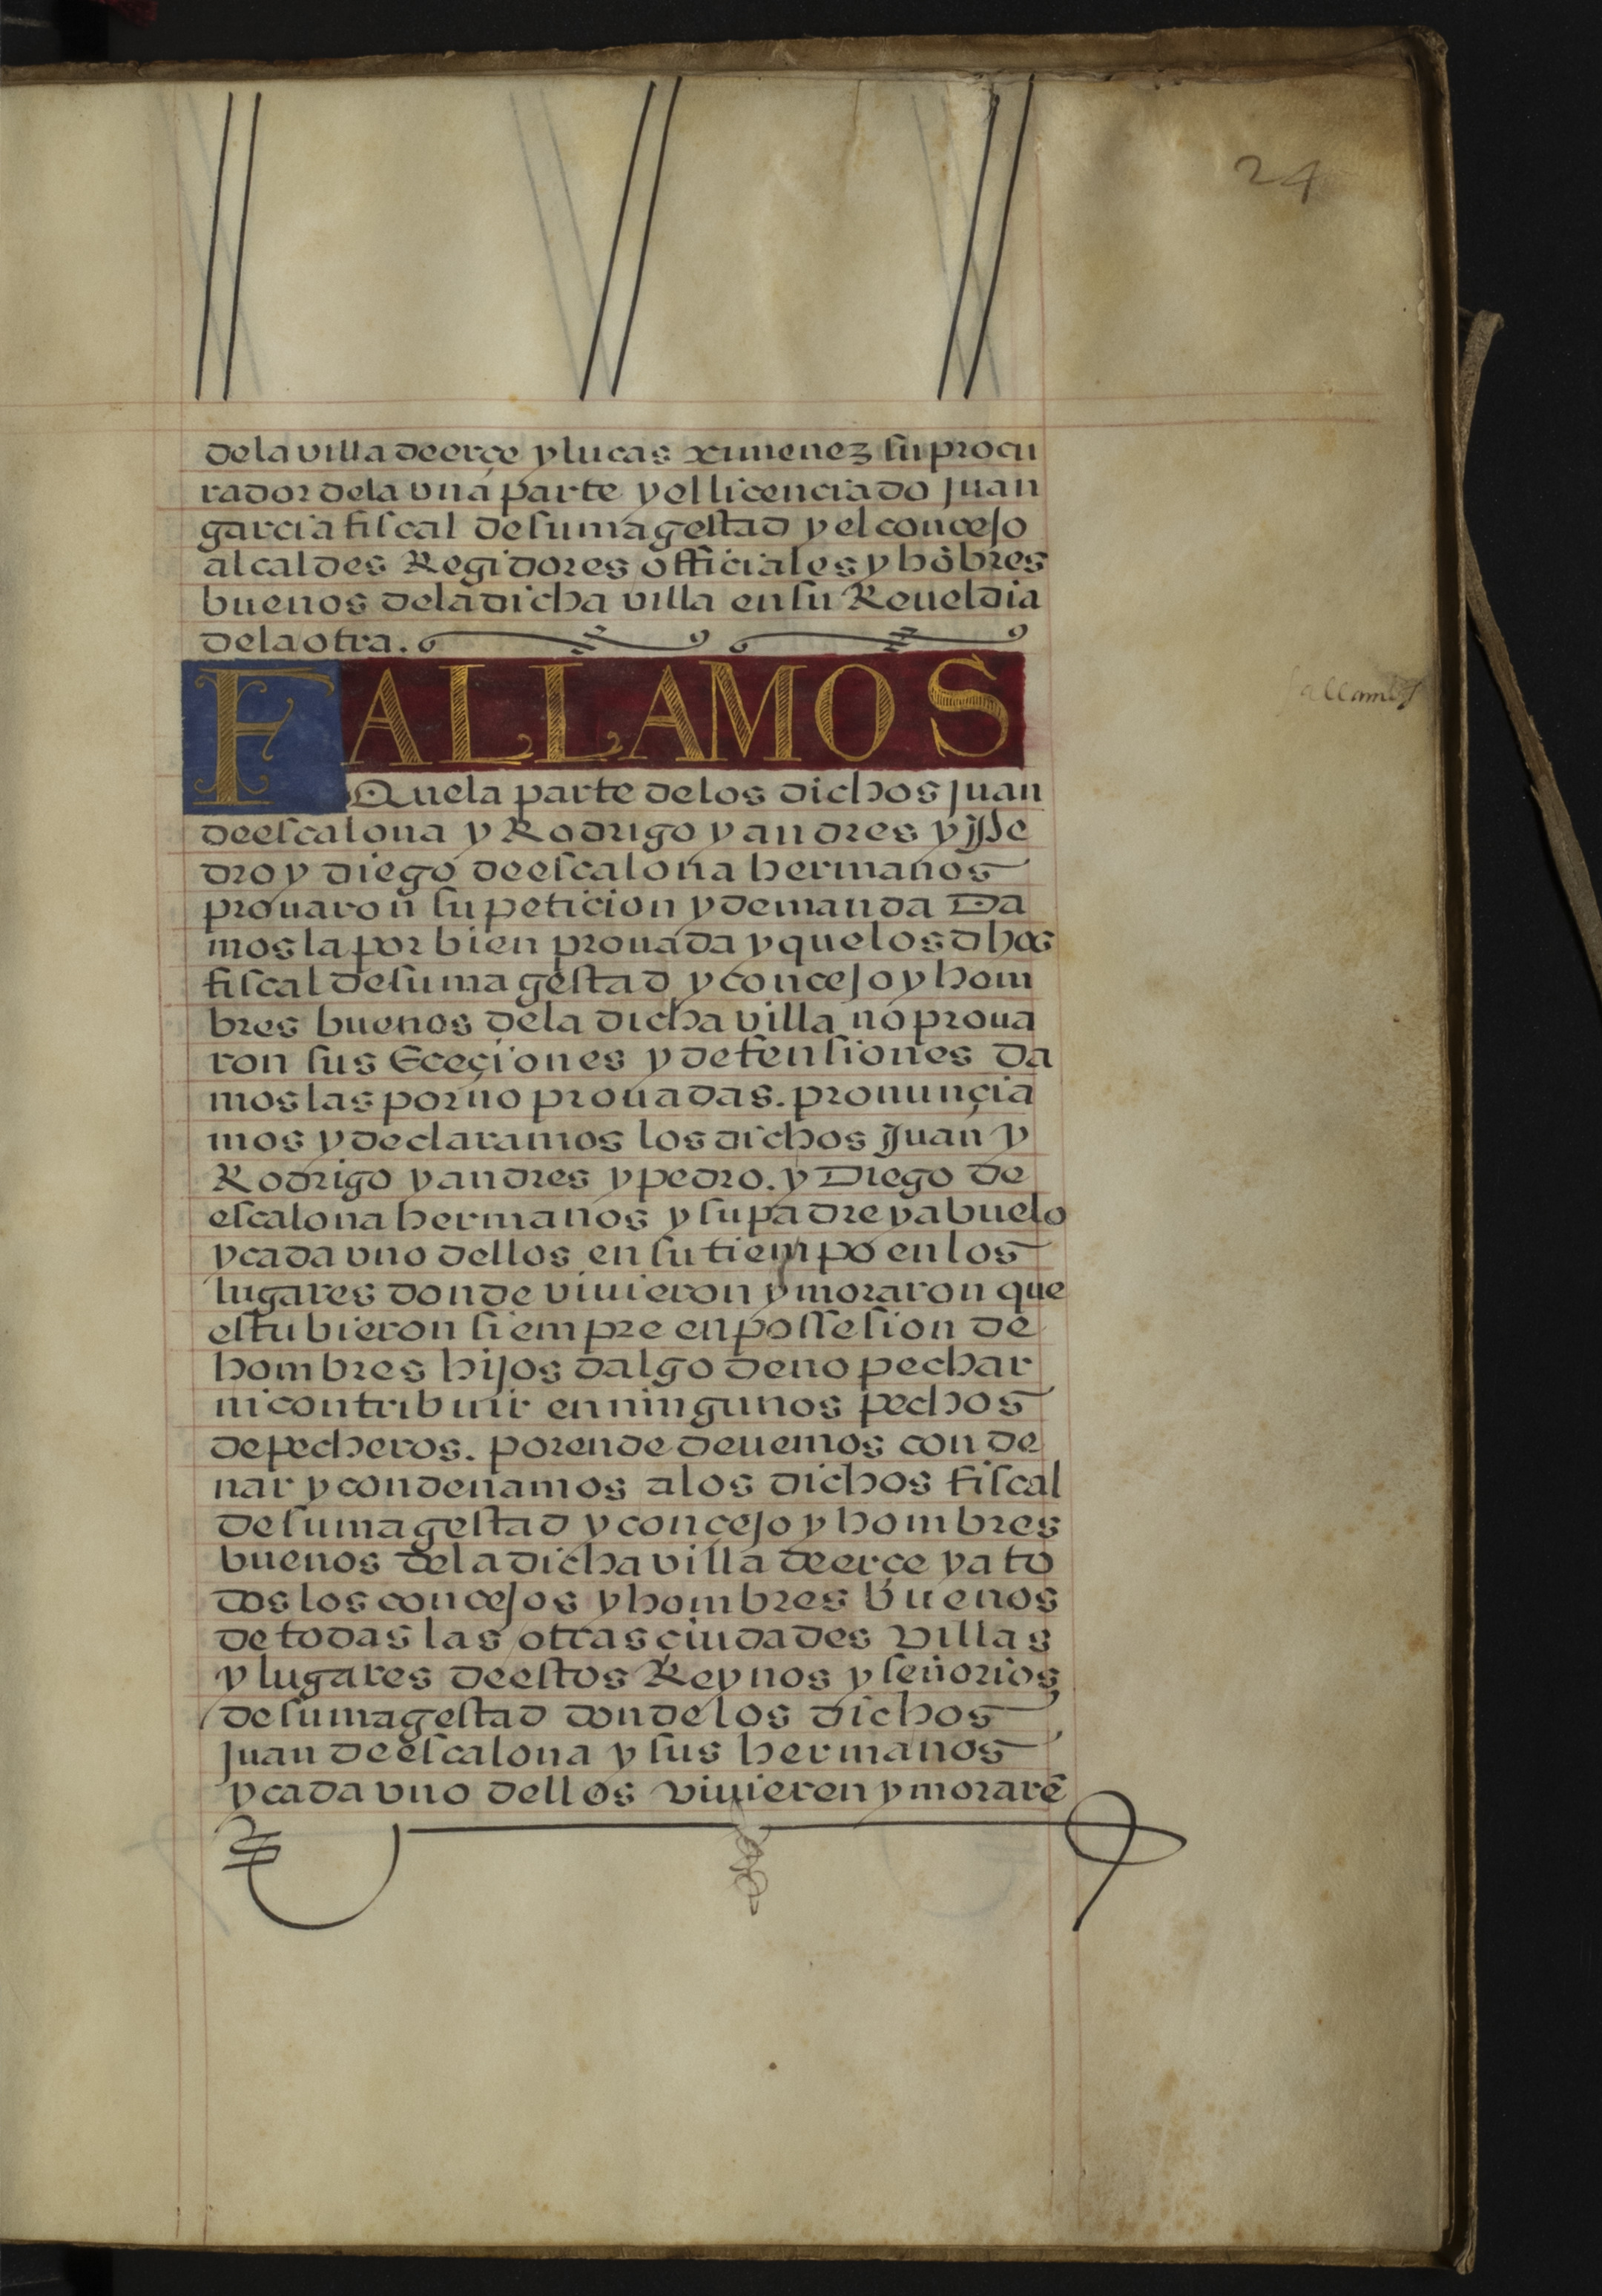 24
dela villa deerçe y lucas ximenez su procu
rador dela vna parte y el licenciado Juan
garcia fiscal desumagestad y el concejo
alcaldes Regidores officiales y hõbres
buenos deladicha villa ensu Reueldia
delaotra.
fallamos
FALLAMOS
Quela parte delos dichos Juan
deescalona y Rodrigo y andres y Pe
dro y diego deescalona hermanos
prouaron su peticion y demanda Da
mosla por bien prouada y quelos dhos
fiscal desumagestad y concejo y hom
bres buenos dela dicha villa no proua
ron sus Eceçiones y defensiones da
moslas por no prouadas. pronunçia
mos y declaramos los dichos Juan y
Rodrigo y andres y pedro. y Diego de
escalona hermanos y su padre y abuelo
y cada vno dellos en su tiempo en los
lugares donde viuieron y moraron que
estubieron siempre en possesion de
hombres hijos dalgo deno pechar
ni contribuir enningunos pechos
depecheros. porende deuemos conde
nar y condenamos alos dichos fiscal
desumagestad y concejo y hombres
buenos deladicha villa deerçe y a to
dos los concejos y hombres buenos
de todas las otras çiudades villas
y lugares deestos Reynos y señorios
desumagestad donde los dichos
Juan deescalona y sus hermanos
y cada vno dellos viuieren y morarẽ